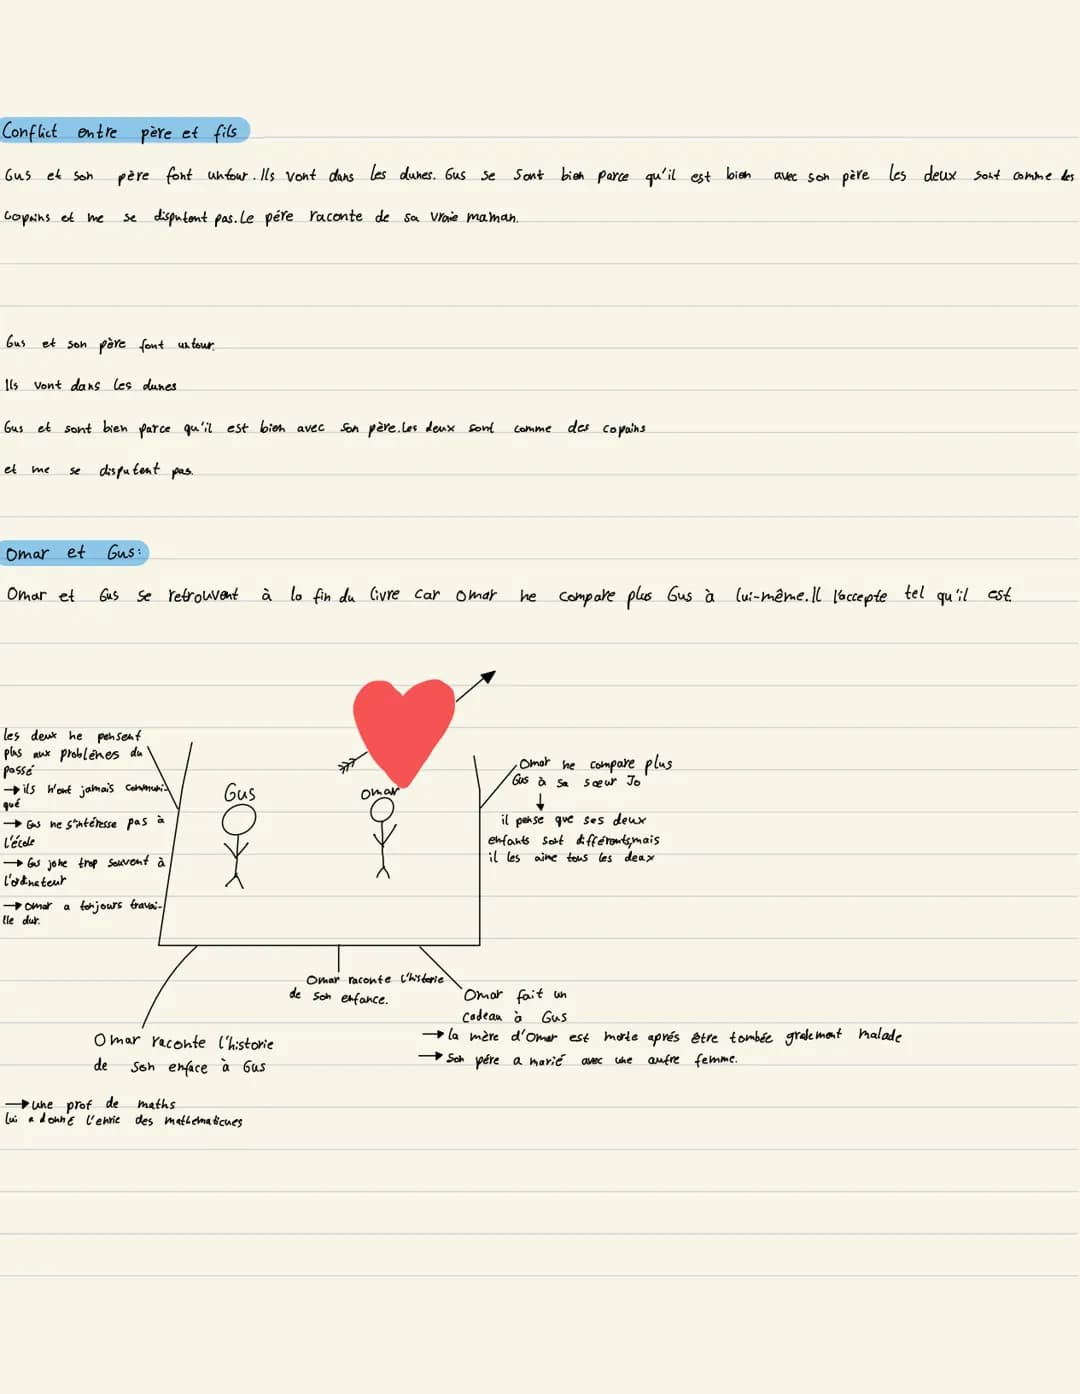 Conflict entre père et fils
Gus et son père font untour. Ils vont dans les dunes. Gus se sont bien parce qu'il est bien avec son père les deux sont comme des
copains et me se disputent pas. Le pére raconte de sa vraie maman.
Gus et son père font untour.
Ils vont dans les dunes
Gus et sont bien parce qu'il est bien avec son père. Les deux sont comme des copains
et me se disputent pas.
Omar et Gus:
Omar et Gus se retrouvent à la fin du livre car Omar ne compare plus Gus à lui-même. Il l'accepte tel qu'il est.
les deux ne pensent
plus aux problènes du
passé
→ ils n'ont jamais communi-
qué
→ Gus ne s'intéresse pas à
l'école
→ Gus joue trop souvent à
l'ordinateur
→ Omar a toujours travai-
lle dur.
Gus
Omar
Omar ne compare plus
Gus à sa sœur Jo
↓
il pense que ses deux
enfants sont différents, mais
il les aime tous les deux
Omar raconte l'historie
de son enfance.
Omar fait un
cadeau à Gus
→ la mère d'Omar est morte aprés être tombée gralement malade
→ Son pére a marié avec une autre femme.
Omar raconte l'historie
de son enface à Gus
→ une prof de maths
lui a donné l'envie des mathematicues